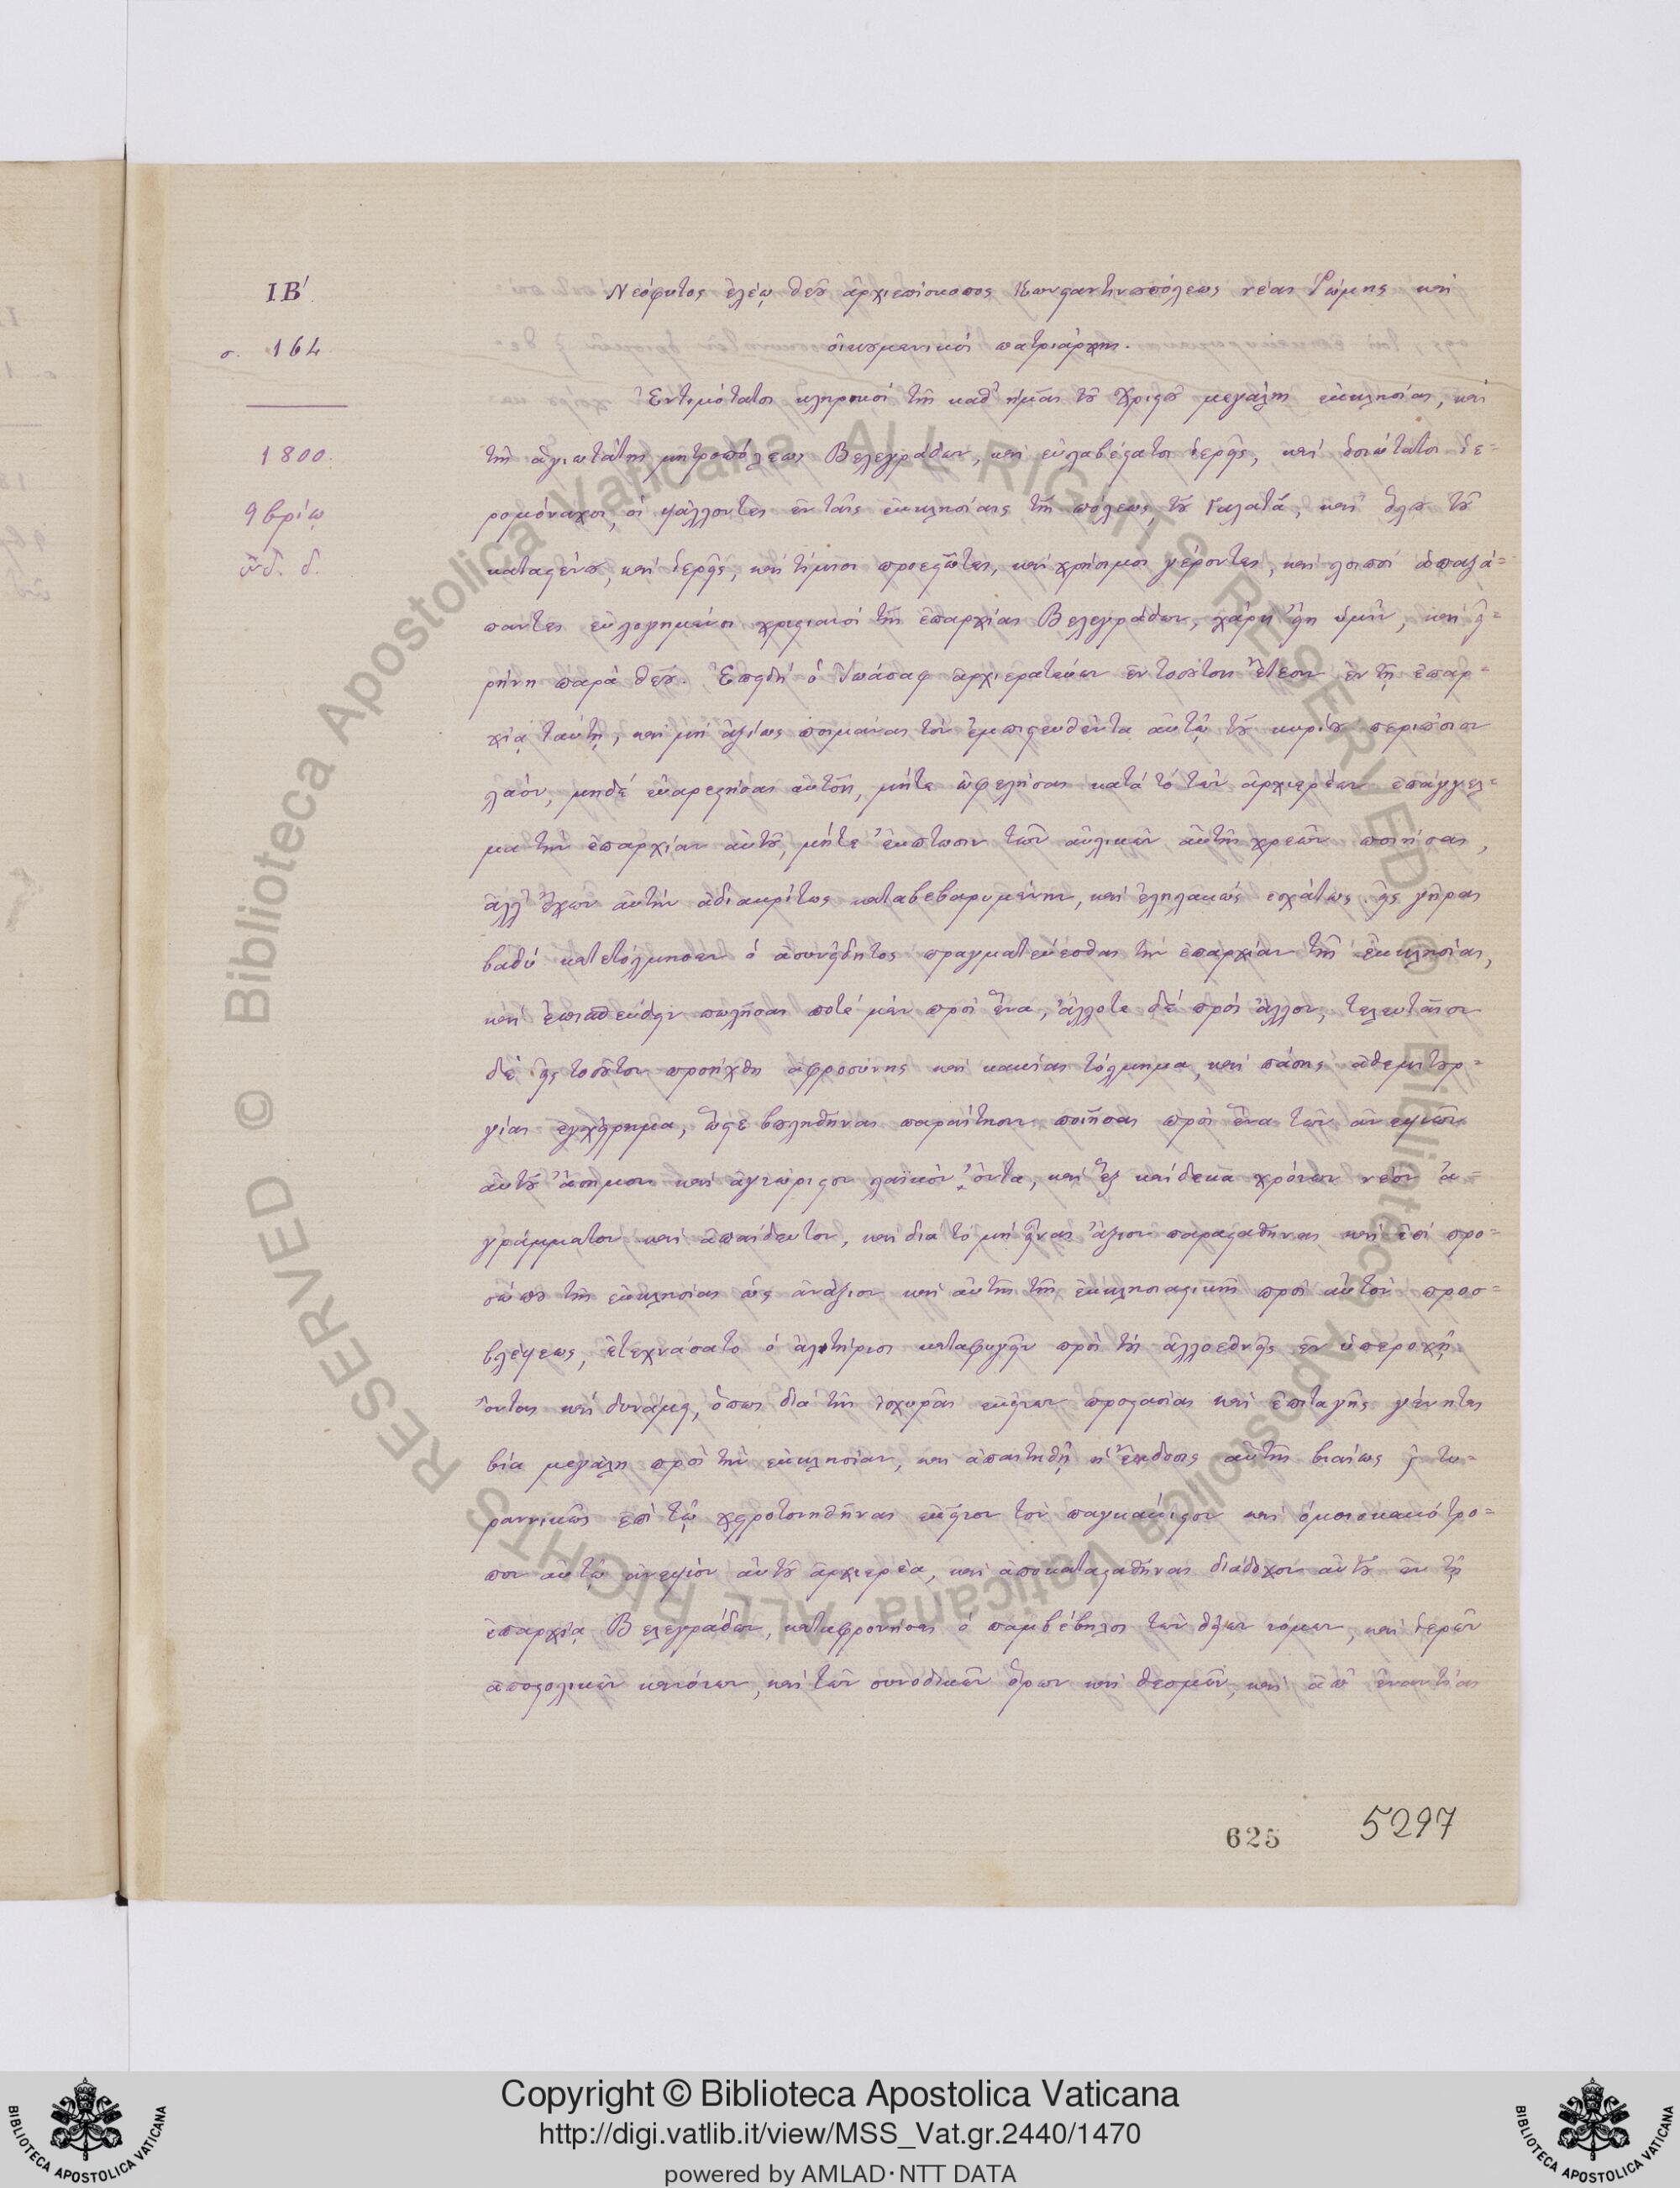 ΙΒ΄.
σ. 164
1800.
9βρίῳ
ἰνδ. δ.
Νεόφυτος ἐλέῳ θεοῦ ἀρχιεπίσκοπος Κωνσταντινουπόλεως νέας Ῥώμης καὶ
οἰκουμενικὸς πατριάρχης.
Ἐντιμότατοι κληρικοὶ τῆς καθ' ἡμᾶς τοῦ Χριστοῦ μεγάλης ἐκκλησίας, καὶ
τῆς ἁγιωτάτης μητροπόλεως Βελεγράδων, καὶ εὐλαβέστατοι ἱερεῖς, καὶ ὁσιώτατοι ἱε=
ρομόναχοι, οἱ ψάλλοντες ἐν ταῖς ἐκκλησίαις τῆς πόλεως, τοῦ Γαλατᾶ, καὶ ὅλου τοῦ
καταστένου, καὶ ἱερεῖς, καὶ τίμιοι προεστῶτες, καὶ χρήσιμοι γέροντες, καὶ λοιποὶ ἁπαξά=
παντες εὐλογημένοι χριστιανοὶ τῆς ἐπαρχίας Βελεγράδων, χάρις εἴη ὑμῖν, καὶ εἰ=
ρήνη παρὰ θεοῦ. Ἐπειδὴ ὁ Ἰωάσαφ ἀρχιερατεύων ἐν τοσούτοις ἔτεσιν ἐν τῇ ἐπαρ=
χίᾳ ταύτῃ, καὶ μὴ ἀξίως ποιμάνας τὸν ἐμπιστευθέντα αὐτῷ τοῦ κυρίου περιούσιον
λαόν, μηδὲ εὐαρεστήσας αὐτοῖς, μήτε ὠφελήσας κατὰ τὸ τῶν ἀρχιερέων ἐπάγγελ=
μα τὴν ἐπαρχίαν αὐτοῦ, μήτε ἔκπτωσιν τῶν αὐλικῶν αὐτῆς χρεῶν ποιήσας,
ἀλλ' ἔχων αὐτὴν ἀδιακρίτως καταβεβαρυμένην, καὶ ἐληλακὼς ἐσχάτως εἰς γῆρας
βαθὺ κατετόλμησεν ὁ ἀσυνείδητος πραγματεύεσθαι τὴν ἐπαρχίαν τῆς ἐκκλησίας,
καὶ ἐπισπεύδειν πωλῆσαι ποτὲ μὲν πρὸς ἕνα, ἄλλοτε δὲ πρὸς ἄλλον, τελευταῖον
δὲ εἰς τοσοῦτον προήχθη ἀφροσύνης καὶ κακίας τόλμημα, καὶ πάσης ἀθεμιτουρ=
γίας ἐγχείρημα, ὥστε βουληθῆναι παραίτησιν ποιῆσαι πρὸς ἕνα τῶν ἀνεψιῶν
αὐτοῦ ἄσημον καὶ ἀγνώριστον λαϊκὸν ὄντα, καὶ ἓξ καὶ δέκα χρόνων νέον ἀ=
γράμματον καὶ ἀπαίδευτον, καὶ διὰ τὸ μὴ εἶναι ἄξιον παρασταθῆναι καὶ ἐπὶ προ=
σώπου τῆς ἐκκλησίας ὡς ἀνάξιον καὶ αὐτῆς τῆς ἐκκλησιαστικῆς πρὸς αὐτὸν προσ=
βλέψεως, ἐτεχνάσατο ὁ ἀλιτήριος καταφυγεῖν πρὸς τοὺς ἀλλοεθνεῖς ἐν ὑπεροχῇ
ὄντας καὶ δυνάμει, ὅπως διὰ τῆς ἰσχυρᾶς ἐκείνων προστασίας καὶ ἐπιταγῆς γένηται
βία μεγάλη πρὸς τὴν ἐκκλησίαν, καὶ ἀπαιτηθῇ ἡ ἔκδοσις αὐτῆς βιαίως καὶ τυ=
ραννικῶς ἐπὶ τῷ χειροτονηθῆναι ἐκεῖνον τὸν παγκάκιστον καὶ ὁμοιοκακότρο=
πον αὐτῷ ἀνεψιὸν αὐτοῦ ἀρχιερέα, καὶ ἀποκατασταθῆναι διάδοχον αὐτοῦ ἐν τῇ
ἐπαρχίᾳ Βελεγράδων, καταφρονήσας ὁ παμβέβηλος τῶν θείων νόμων, καὶ ἱερῶν
ἀποστολικῶν κανόνων, καὶ τῶν συνοδικῶν ὅρων καὶ θεσμῶν, καὶ ἀπ' ἐναντίας
625
5297
Copyright © Biblioteca Apostolica Vaticana
http://digi.vatlib.it/view/MSS_Vat.gr.2440/1470
powered by AMLAD·NTT DATA
BIBLIOTECA APOSTOLICA VATICANA
BIBLIOTECA APOSTOLICA VATICANA